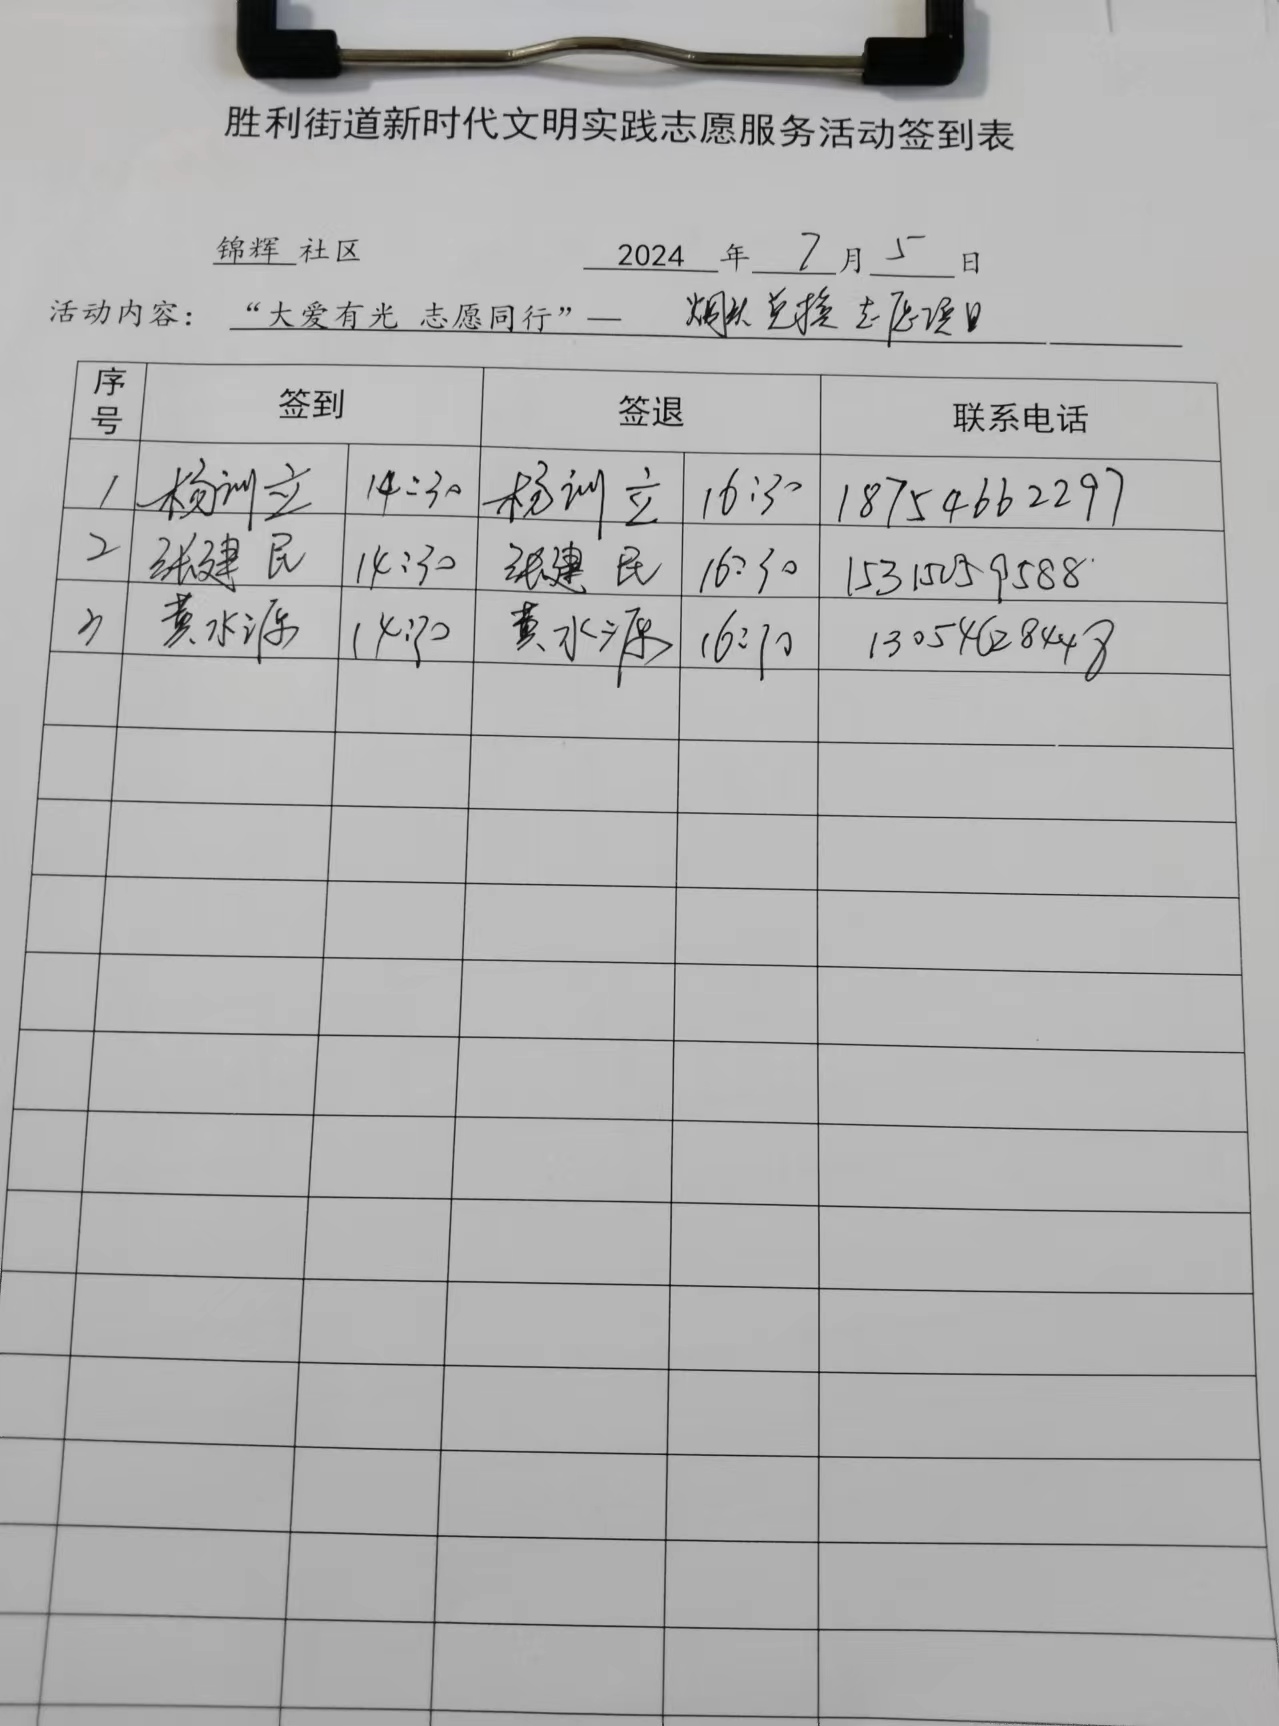 胜利街道新时代文明实践志愿服务活动签到表
锦辉 社区 2024 年 7 月 5 日
活动内容：“大爱有光 志愿同行”— 烟头兑换志愿项目
序号 签到 签退 联系电话
1 杨训立 14:30 杨训立 16:30 18754662297
2 张建民 14:30 张建民 16:30 15315059588
3 黄水源 14:30 黄水源 16:30 13054628448